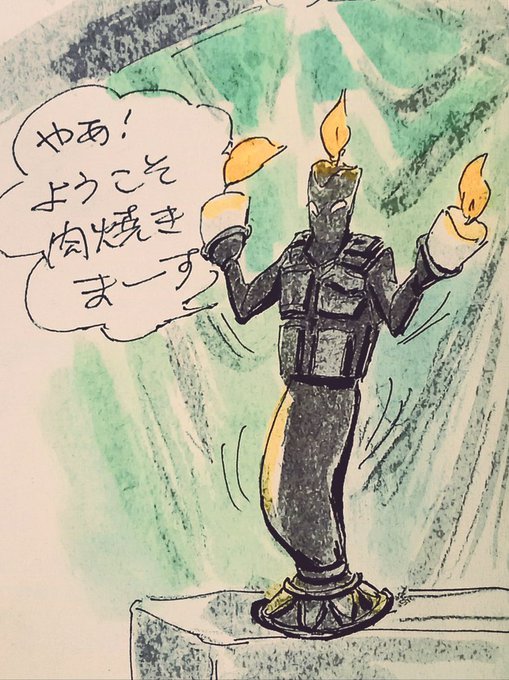 やあ!
ようこそ
肉焼き
まーす